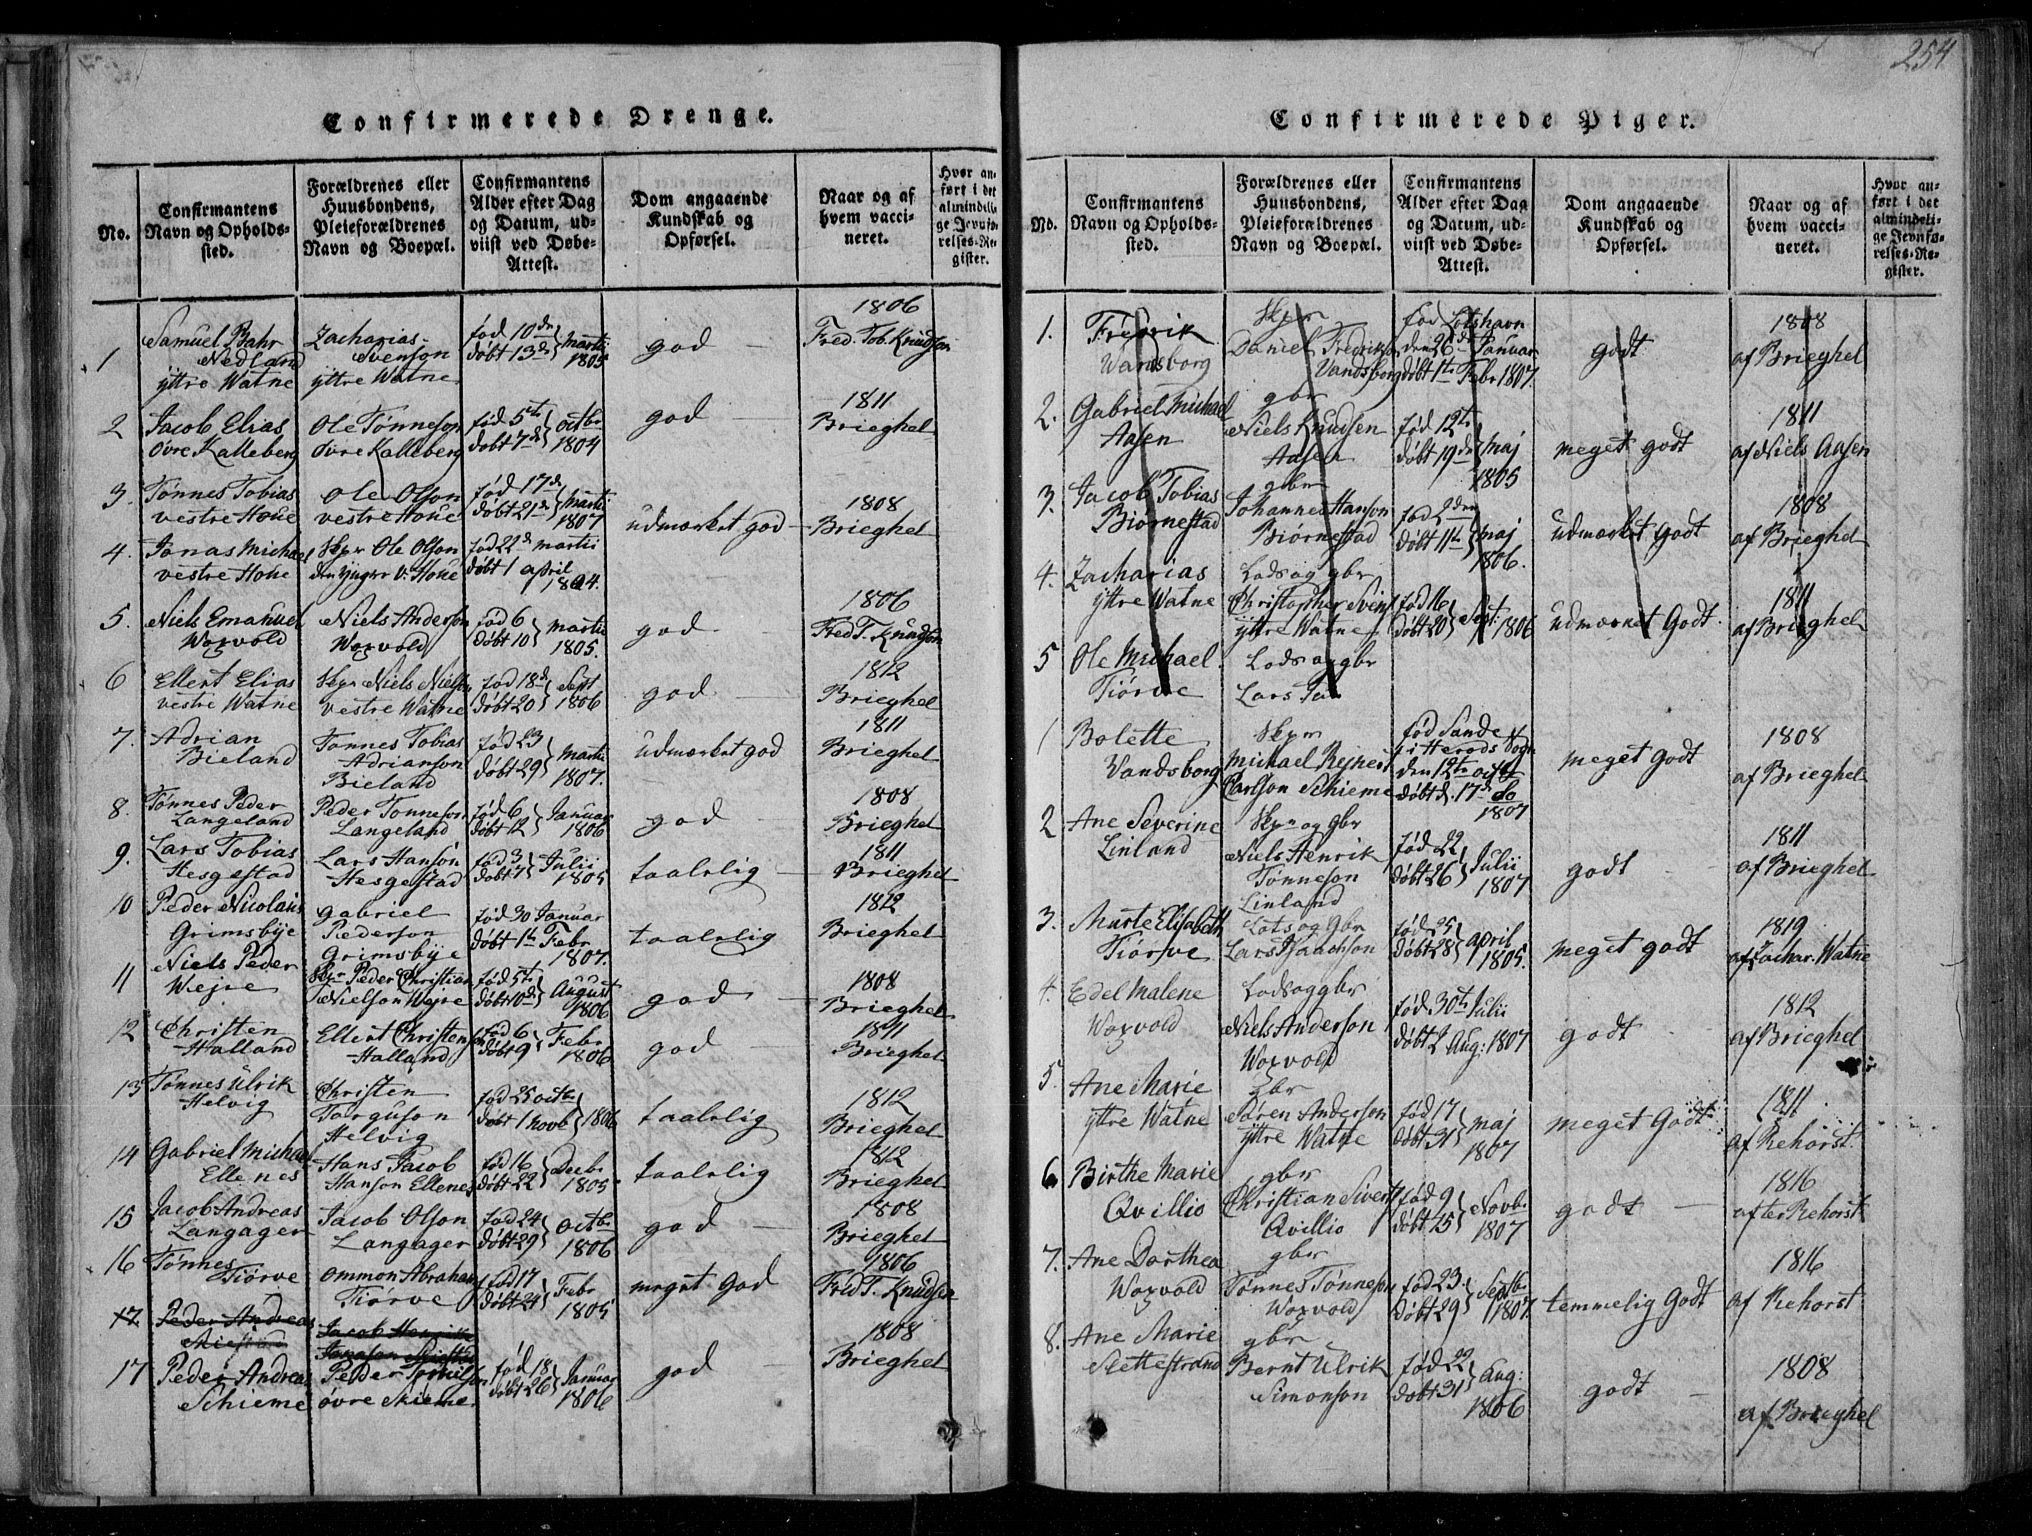 254
Confirmerede Drenge.
No.
Confirmantens Navn og Opholds-sted.
Forældrenes eller Huusbondens, Pleieforældrenes Navn og Boepæl.
Confirmantens Alder efter Dag og Datum, ud-viist ved Døbe-Attest.
Dom angaaende Kundskab og Opførsel.
Naar og af hvem vacci-neret.
Hvor an-ført i det almindeli-ge Jevnfø-relses-Re-gister.
1 Samuel Bahr Nedland yttre Watne
Zacharias Svenson yttre Watne
fød 10de døbt 13de martii 1805
god
1806 Fred. Tob. Knudson
2 Jacob Elias övre Kalleberg
Ole Tønneson övre Kalleberg
fød 5te døbt 7de octbr 1804
god
1811 Brieghel
3. Tønnes Tobias vestre Houe
Ole Olson vestre Houe
fød 17de døbt 21de martii 1807
udmærket god
1808 Brieghel
4. Jonas Michael vestre Houe
Skpr Ole Olson den yngre v. Houe
fød 22de martii døbt 1 april 1804.
5. Niels Emanuel Woxvold
Niels Anderson Woxvold
fød 6 døbt 10 martii 1805.
god
1806 Fred T. Knudson
6 Ellert Elias vestre Watne
Skpr Niels Nielson vestre Watne
fød 18de døbt 20 Sept 1806
god
1812 Brieghel
7. Adrian Bieland
Tønnes Tobias Adrianson Bieland
fød 23 døbt 29 martii 1807.
udmærket god
1811 Brieghel
8. Tønnes Peder Langeland
Peder Tønneson Langeland
fød 6 døbt 12 Januar 1806
god
1808 Brieghel
9. Lars Tobias Hesgestad
Lars Hanson Hesgestad
fød 3 døbt 7 Julii 1805
taalelig
1811 Brieghel
10 Peder Nicolaus Grimsbye
Gabriel Pederson Grimsbye
fød 30 Januar døbt 1te Febr 1807.
taalelig
1812 Brieghel
11 Niels Peder Wejre
Skpr Peder Christian Nielson Wejre
fød 5te døbt 10de August 1806
god
1808 Brieghel
12 Christen Halland
Ellert Christen Halland
fød 6 døbt 9 Febr 1806
god
1811 Brieghel
13 Tønnes Ulrik Helvig
Christen Torguson Helvig
fød 25 octbr døbt 1 novb 1806
taalelig
1812 Brieghel
14 Gabriel Michael Ellenes
Hans Jacob Hanson Ellenes
fød 16 døbt 22 Decbr 1805
taalelig
1812 Brieghel
15 Jacob Andreas Langager
Jacob Olson Langager
fød 24 døbt 29 octbr 1806
god
1808 Brieghel
16 Tønnes Tiörve
Ommon Abraham Tiörve
fød 17 døbt 24 Febr 1805
meget God
1806 Fred T. Knudson
17. Peder Andreas
Jacob Henrik
17 Peder Andreas Schieme
Peder övre Skieme
fød 18 døbt 26 Januar 1806
god
1808 Brieghel
Confirmerede Piger.
No.
Confirmantens Navn og Opholds-sted.
Forældrenes eller Huusbondens, Pleieforældrenes Navn og Boepæl.
Confirmantens Alder efter Dag og Datum, ud-viist ved Døbe-Attest.
Dom angaaende Kundskab og Opførsel.
Naar og af hvem vacci-neret.
Hvor an-ført i det almindeli-ge Jevnfø-relses-Re-gister.
1. Fredrik Wandsborg
Skpr Daniel Fredrikson Vandsborg
fød Lotshavn den 26de Januar døbt 1te Febr 1807.
godt
1808 af Brieghel
2. Gabriel Michael Aasen
gbr Niels Knudsen Aasen
fød 12te døbt 19de maj 1805
meget godt
1811 af Niels Aasen
3. Jacob Tobias Biörnestad
gbr Johannes Hanson Biörnestad
fød 2den døbt 11te maj 1806.
udmærket godt
1808 af Brieghel
4. Zacharias yttre Watne
Lods og gbr Christopher Svens yttre Watne
fød 16 døbt 20 Sept: 1806
udmærket Godt.
1811 af Brieghel
5 Ole Michael Tiörve
Lods og gbr Lars
1 Bolette Vandsborg
Skpr Michael Rejnert Carlson Schieme
fød Sande i Herods Sogn den 12te octbr døbt d. 17de do 1807
meget godt
1808 af Brieghel
2 Ane Severine Linland
Skpr og gbr Niels Henrik Tønneson Linland
fød 22 døbt 26 Julii 1807
godt
1811 af Brieghel
3. Marte Elisabeth Tiörve
Lots og Gbr Lars Isaacson
fød 25 døbt 28 april 1805.
meget godt
1819 af Zachar. Watne
4. Edel Malene Woxvold
Lods og gbr Niels Anderson Woxvold
fød 30te Julii døbt 2 Aug: 1807
godt
1812 af Brieghel
5. Ane Marie yttre Watne
gbr Søren Anderson yttre Watne
fød 17 døbt 31 maj 1807
meget Godt
1811 af Rehorst
6 Birthe Marie Qvillio
gbr Christian Sivert Qvillio
fød 9 døbt 15 Novbr 1807
godt
1816 after Rehorst
7. Ane Dorthea Woxvold
gbr Tønnes Tønneson Woxvold
fød 23 døbt 29 Septbr 1807.
temmelig Godt
1816 af Rehorst
8. Ane Marie Slettestrand
gbr Bernt Ulrik Simonson
fød 22 døbt 31 Aug: 1806
godt
1808 af Brieghel